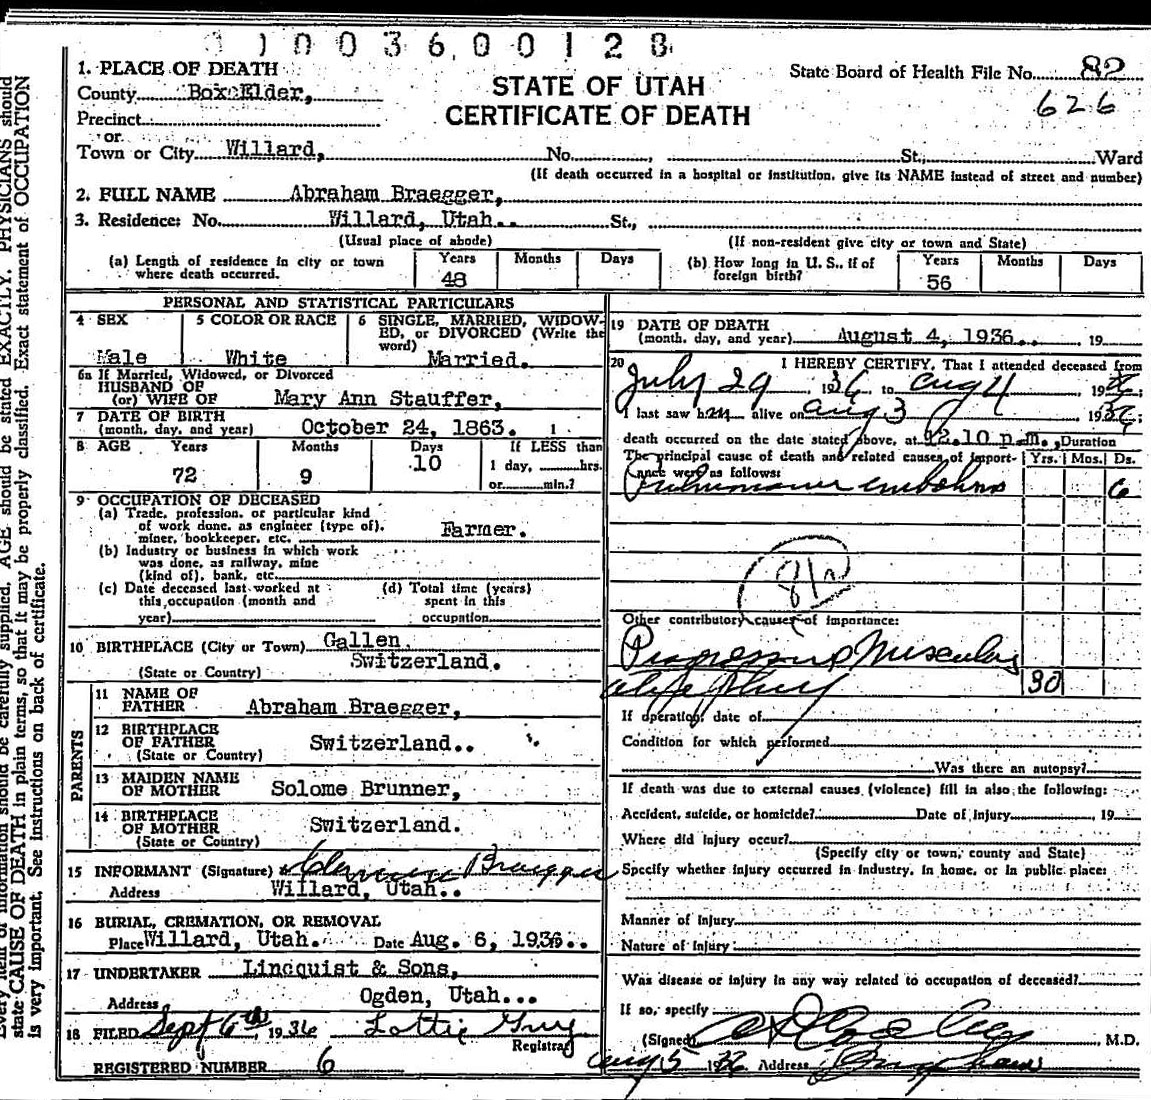 10036,00128
1. PLACE OF DEATH
County Box Elder,
Precinct
or
Town or City Willard, No. , St., Ward
STATE OF UTAH
CERTIFICATE OF DEATH
State Board of Health File No. 82
626
(If death occurred in a hospital or institution, give its NAME instead of street and number)
2. FULL NAME Abraham Braegger,
3. Residence: No. Willard, Utah.. St.,
(Usual place of abode) (If non-resident give city or town and State)
(a) Length of residence in city or town where death occurred. Years 48 Months Days
(b) How long in U. S., if of foreign birth? Years 56 Months Days
PERSONAL AND STATISTICAL PARTICULARS
4 SEX Male
5 COLOR OR RACE White
6 SINGLE, MARRIED, WIDOWED, or DIVORCED (Write the word) Married.
6a If Married, Widowed, or Divorced
HUSBAND OF
(or) WIFE OF Mary Ann Stauffer,
7 DATE OF BIRTH
(month, day, and year) October 24, 1863. 1
8 AGE Years 72 Months 9 Days 10 If LESS than 1 day, hrs. or min.?
9 OCCUPATION OF DECEASED
(a) Trade, profession, or particular kind
of work done, as engineer (type of),
miner, bookkeeper, etc. Farmer.
(b) Industry or business in which work
was done, as railway, mine
(kind of), bank, etc.
(c) Date deceased last worked at this occupation (month and year)
(d) Total time (years) spent in this occupation
10 BIRTHPLACE (City or Town) Gallen,
(State or Country) Switzerland.
PARENTS
11 NAME OF FATHER Abraham Braegger,
12 BIRTHPLACE OF FATHER (State or Country) Switzerland..
13 MAIDEN NAME OF MOTHER Solome Brunner,
14 BIRTHPLACE OF MOTHER (State or Country) Switzerland.
15 INFORMANT (Signature) Braegger
Address Willard, Utah..
16 BURIAL, CREMATION, OR REMOVAL
Place Willard, Utah. Date Aug. 6, 1936..
17 UNDERTAKER Lindquist & Sons,
Address Ogden, Utah...
18 FILED Sept 6th, 1936 Lottie Guy
Registrar
REGISTERED NUMBER 6
19 DATE OF DEATH
(month, day, and year) August 4, 1936.. , 19
20 I HEREBY CERTIFY, That I attended deceased from
July 29 1936 to Aug 4 1936
I last saw him alive on Aug 3 1936;
death occurred on the date stated above, at 12.10 p.m., Duration
The principal cause of death and related causes of importance were as follows: Yrs. Mos. Ds.
Pulmonary embolism 6
Other contributory causes of importance:
Progressive Muscular
atrophy 30
If operation, date of
Condition for which performed
Was there an autopsy?
If death was due to external causes (violence) fill in also the following:
Accident, suicide, or homicide? Date of injury , 19
Where did injury occur?
(Specify city or town, county and State)
Specify whether injury occurred in industry, in home, or in public place:
Manner of injury
Nature of injury
Was disease or injury in any way related to occupation of deceased?
If so, specify
(Signed) M.D.
Aug 5 1936 Address Brigham
Every item of information should be carefully supplied. AGE should be stated EXACTLY. PHYSICIANS should
state CAUSE OF DEATH in plain terms, so that it may be properly classified. Exact statement of OCCUPATION
is very important. See instructions on back of certificate.